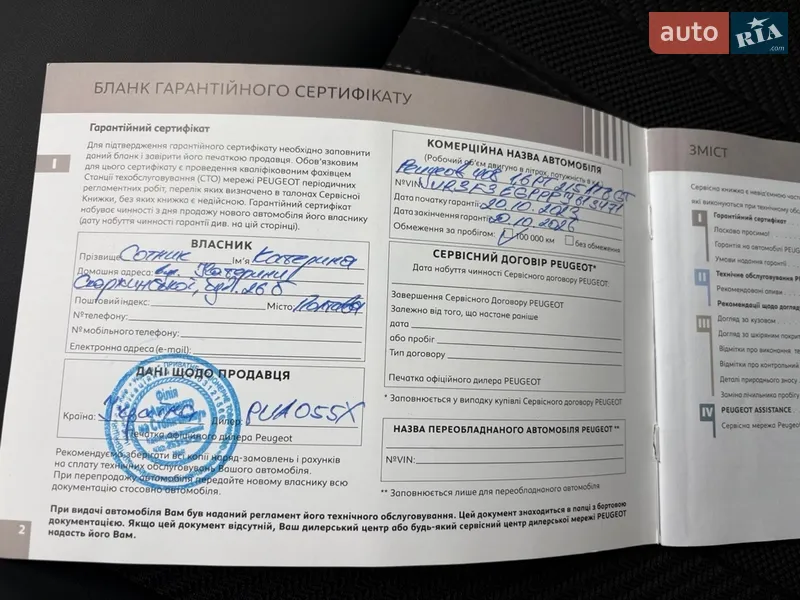 auto RIA .com
БЛАНК ГАРАНТІЙНОГО СЕРТИФІКАТУ
I
Гарантійний сертифікат
Для підтвердження гарантійного сертифікату необхідно заповнити
даний бланк і завірити його печаткою продавця. Обов'язковим
для цього сертифікату є проведення кваліфікованим фахівцем
Станції техобслуговування (СТО) мережі PEUGEOT періодичних
регламентних робіт, перелік яких визначено в талонах Сервісної
Книжки, без яких книжка є недійсною. Гарантійний сертифікат
набуває чинності з дня продажу нового автомобіля його власнику
(дату набуття чинності гарантії див. на цій сторінці).
ВЛАСНИК
Прізвище: Сотник Ім'я: Катерина
Домашня адреса: вул. Катерини
Скаржинської, буд. 26 б
Поштовий індекс: Місто: Полтава
№телефону:
№мобільного телефону:
Електронна адреса (e-mail):
ДАНІ ЩОДО ПРОДАВЦЯ
Країна: Україна Дилер: PUA055X
Печатка офіційного дилера Peugeot
Філія
Рекомендуємо зберігати всі копії наряд-замовлень і рахунків
на сплату технічних обслуговувань Вашого автомобіля.
При перепродажу автомобіля передайте новому власнику всю
документацію стосовно автомобіля.
КОМЕРЦІЙНА НАЗВА АВТОМОБІЛЯ
(Робочий об'єм двигуно в літрах, потужність в к.с.)
Peugeot 408 1.6
№VIN:
Дата початку гарантії: 20.10.2023
Дата закінчення гарантії: 20.10.2026
Обмеження за пробігом: 100 000 км без обмеження
СЕРВІСНИЙ ДОГОВІР PEUGEOT*
Дата набуття чинності Сервісного Договору PEUGEOT:
Завершення Сервісного Договору PEUGEOT
Залежно від того, що настане раніше
дата
або пробіг
Тип договору
Печатка офіційного дилера PEUGEOT
* Заповнюється у випадку купівлі Сервісного договору PEUGEOT
НАЗВА ПЕРЕОБЛАДНАНОГО АВТОМОБІЛЯ PEUGEOT **
№VIN:
** Заповнюється лише для переобладнаного автомобіля
При видачі автомобіля Вам був наданий регламент його технічного обслуговування. Цей документ знаходиться в папці з бортовою
документацією. Якщо цей документ відсутній, Ваш дилерський центр або будь-який сервісний центр дилерської мережі PEUGEOT
надасть його Вам.
2
ЗМІСТ
Сервісна книжка є невід'ємною
які виконуються при технічному
I Гарантійний сертифікат
Ласкаво просимо!
Гарантія на автомобілі
Умови надання гарантії
II Технічне обслуговування
Рекомендовані оливи
Рекомендації щодо догляду
III Догляд за кузовом
Догляд за шкіряним
Відмітки про виконання
Відмітки про контрольний
Деталі природного зносу
Заміна лічильника пробігу
IV PEUGEOT ASSISTANCE
Сервісна мережа